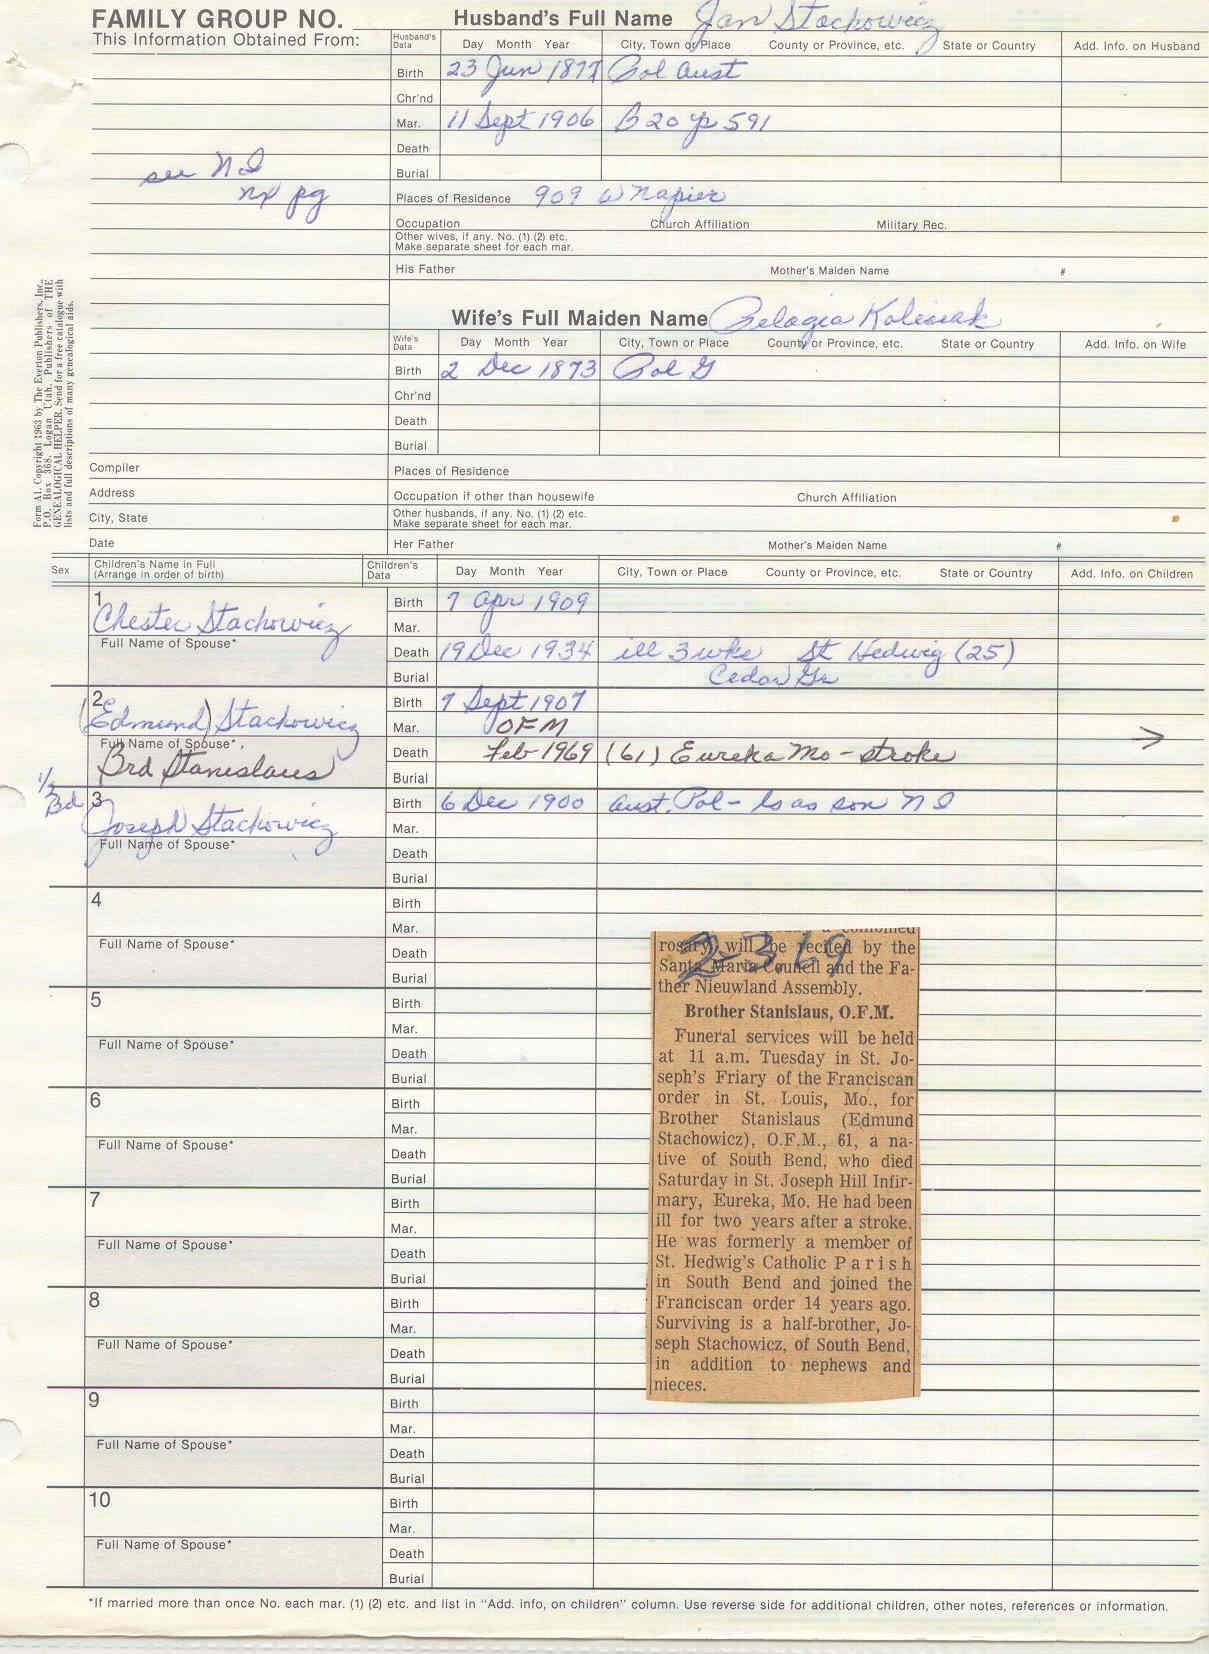 FAMILY GROUP NO.
Husband's Full Name Jan Stachowicz
This Information Obtained From:
Husband's Data Day Month Year City, Town or Place County or Province, etc. State or Country Add. Info. on Husband
Birth 23 Jun 1877 Pol Aust
Chr'nd
Mar. 11 Sept 1906 B 20 p 591
Death
see N I
Burial
nx pg
Places of Residence 909 W Napier
Occupation Church Affiliation Military Rec.
Other wives, if any. No. (1) (2) etc.
Make separate sheet for each mar.
His Father Mother's Maiden Name #
Form A1. Copyright 1963 by The Everton Publishers, Inc.,
P.O. Box 368, Logan Utah. Publishers of THE
GENEALOGICAL HELPER. Send for a free catalogue with
lists and full descriptions of many genealogical aids.
Wife's Full Maiden Name Pelagia Kolesiak
Wife's Data Day Month Year City, Town or Place County or Province, etc. State or Country Add. Info. on Wife
Birth 2 Dec 1873 Pol G
Chr'nd
Death
Burial
Compiler Places of Residence
Address Occupation if other than housewife Church Affiliation
City, State Other husbands, if any. No. (1) (2) etc.
Make separate sheet for each mar.
Date Her Father Mother's Maiden Name #
Sex Children's Name in Full
(Arrange in order of birth) Children's Data Day Month Year City, Town or Place County or Province, etc. State or Country Add. Info. on Children
1 Birth 7 Apr 1909
Chester Stachowicz Mar.
Full Name of Spouse* Death 19 Dec 1934 ill 3 wks St Hedwig (25)
Burial Cedar Gr
2 Birth 7 Sept 1907
(Edmund) Stachowicz Mar. OFM
Full Name of Spouse* Death Feb 1969 (61) Eureka Mo - stroke →
Brd Stanislaus Burial
1/2 Bd 3 Birth 6 Dec 1900 Aust. Pol - ls as son N I
Joseph Stachowicz Mar.
Full Name of Spouse* Death
Burial
4 Birth
Mar.
Full Name of Spouse* Death
Burial
5 Birth
Mar.
Full Name of Spouse* Death
Burial
6 Birth
Mar.
Full Name of Spouse* Death
Burial
7 Birth
Mar.
Full Name of Spouse* Death
Burial
8 Birth
Mar.
Full Name of Spouse* Death
Burial
9 Birth
Mar.
Full Name of Spouse* Death
Burial
10 Birth
Mar.
Full Name of Spouse* Death
Burial
a combined
rosary will be recited by the
2-3-69
Santa Maria Council and the Fa-
ther Nieuwland Assembly.
Brother Stanislaus, O.F.M.
Funeral services will be held
at 11 a.m. Tuesday in St. Jo-
seph's Friary of the Franciscan
order in St. Louis, Mo., for
Brother Stanislaus (Edmund
Stachowicz), O.F.M., 61, a na-
tive of South Bend, who died
Saturday in St. Joseph Hill Infir-
mary, Eureka, Mo. He had been
ill for two years after a stroke.
He was formerly a member of
St. Hedwig's Catholic Parish
in South Bend and joined the
Franciscan order 14 years ago.
Surviving is a half-brother, Jo-
seph Stachowicz, of South Bend,
in addition to nephews and
nieces.
*If married more than once No. each mar. (1) (2) etc. and list in "Add. info, on children" column. Use reverse side for additional children, other notes, references or information.